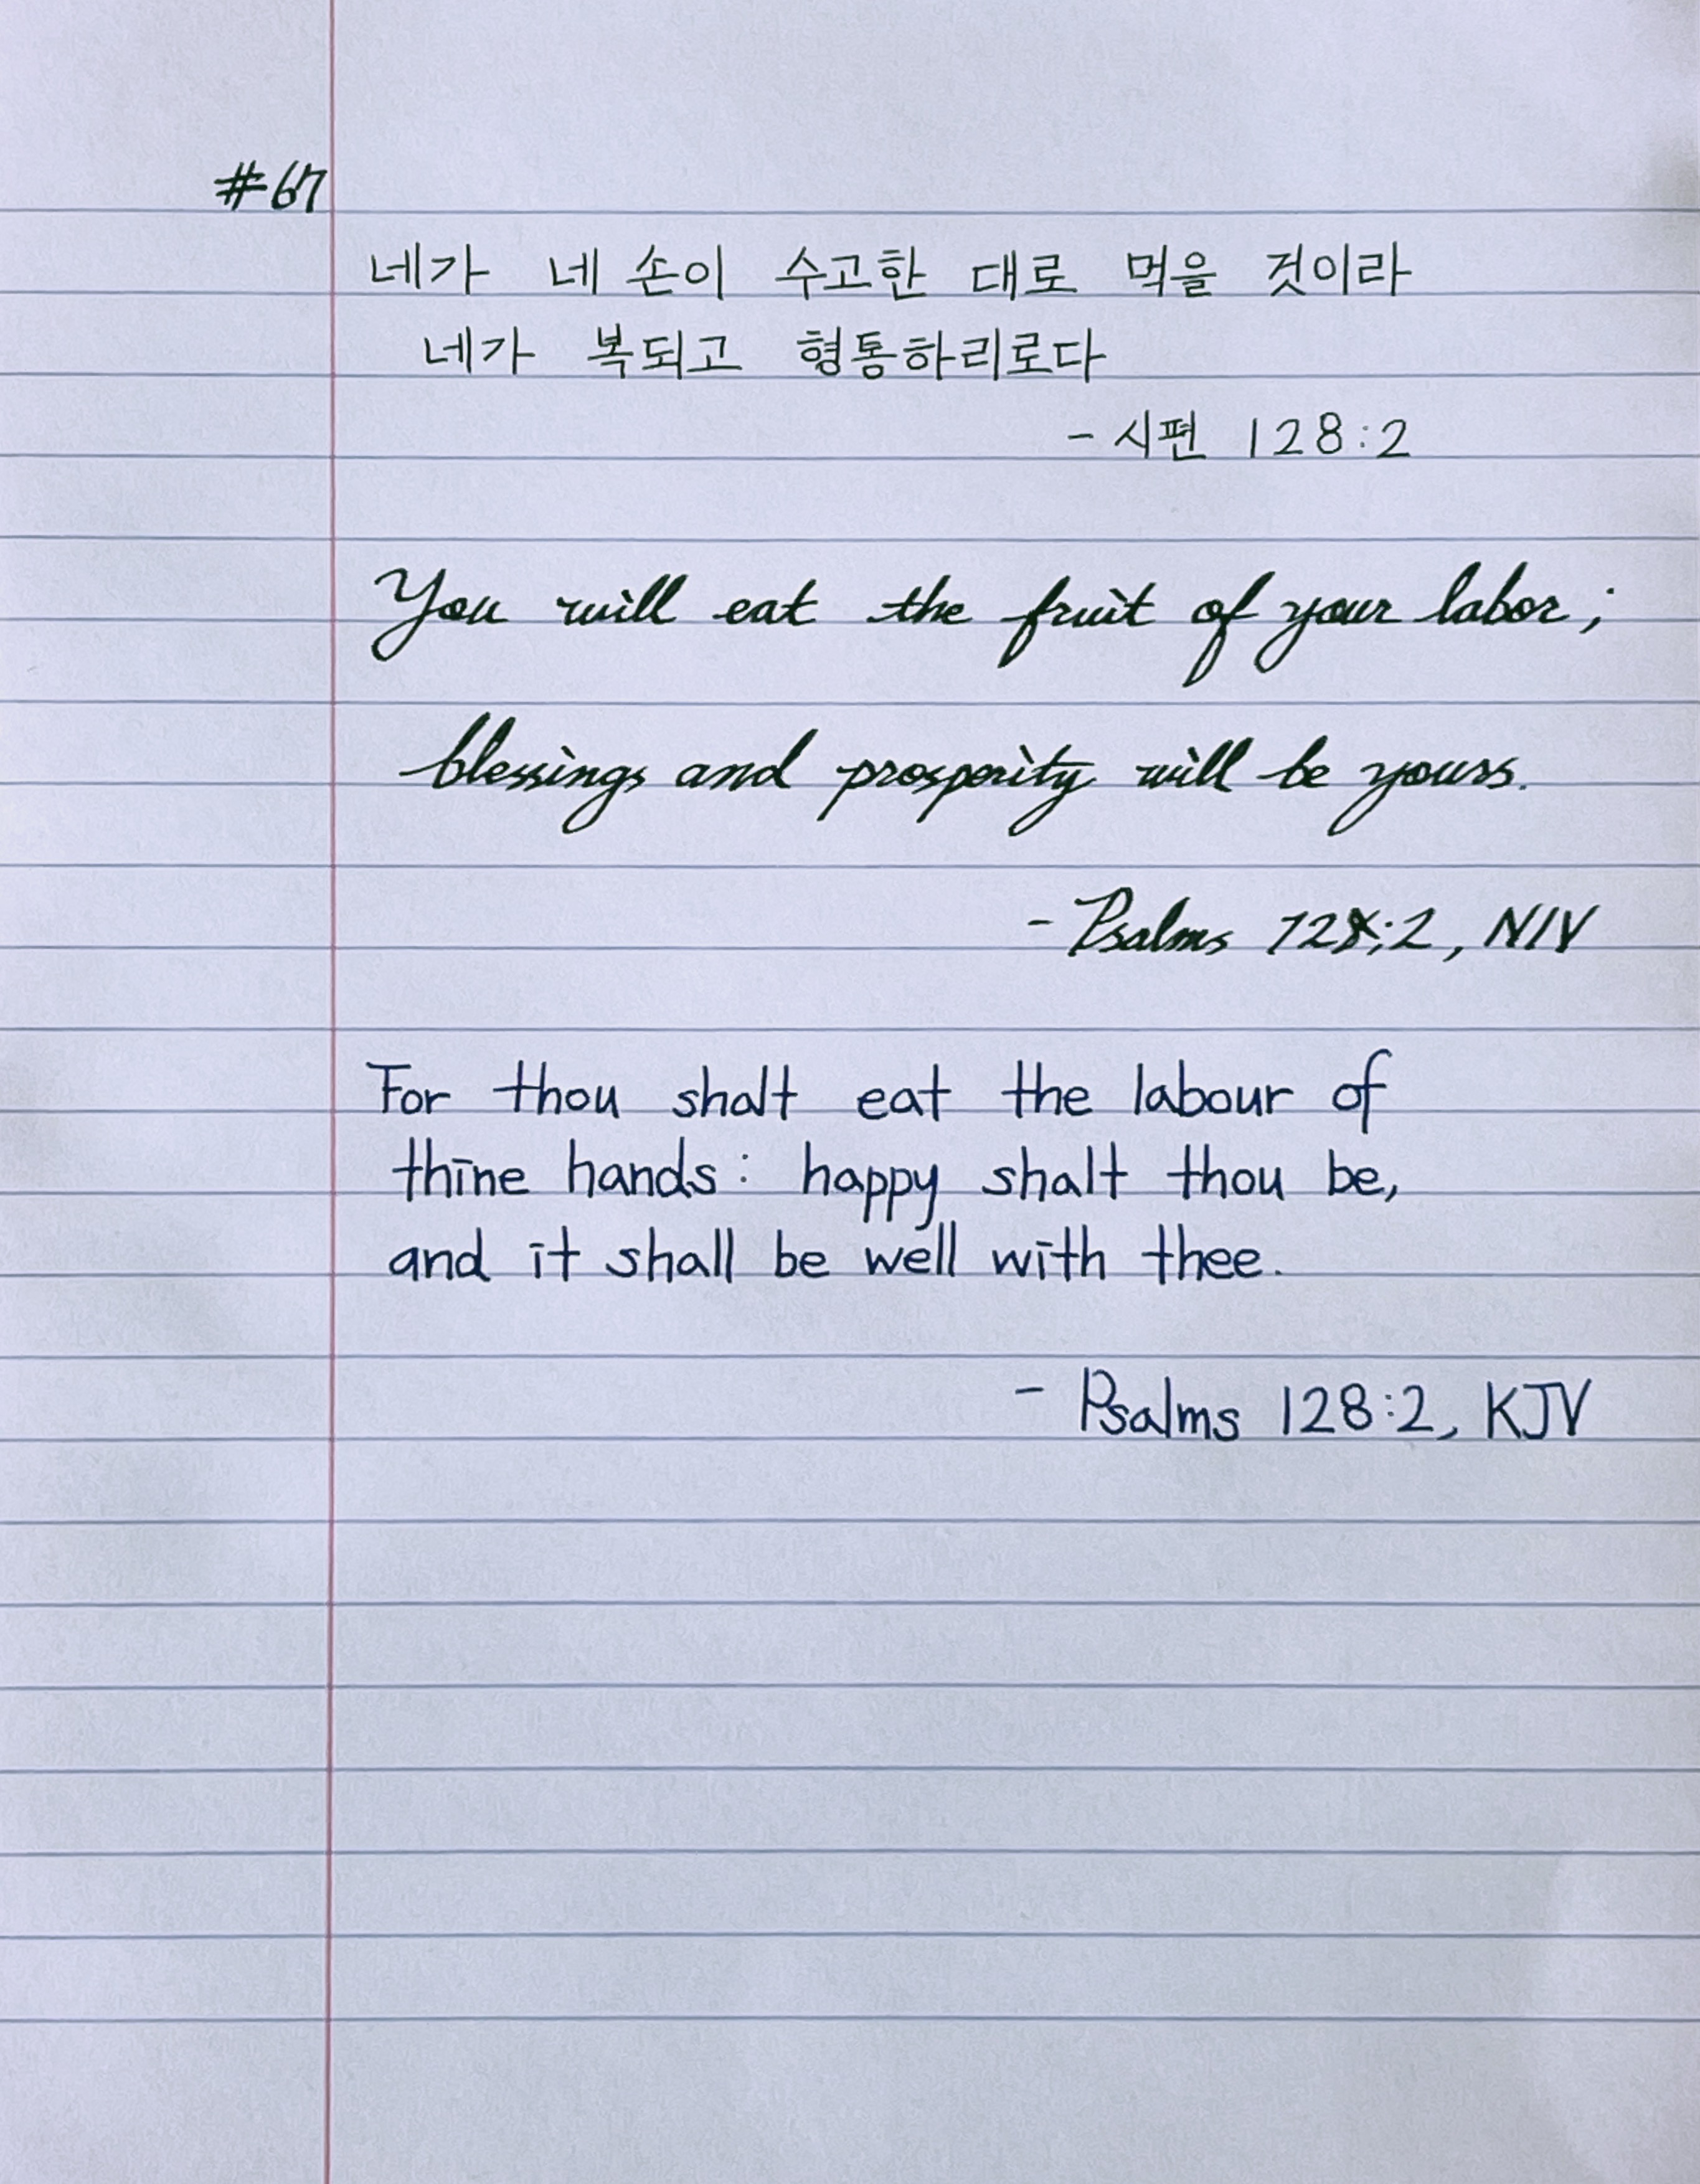 #67
네가 네 손이 수고한 대로 먹을 것이라
네가 복되고 형통하리로다
- 시편 128:2
You will eat the fruit of your labor;
blessings and prosperity will be yours.
- Psalms 128:2, NIV
For thou shalt eat the labour of
thine hands: happy shalt thou be,
and it shall be well with thee.
- Psalms 128:2, KJV